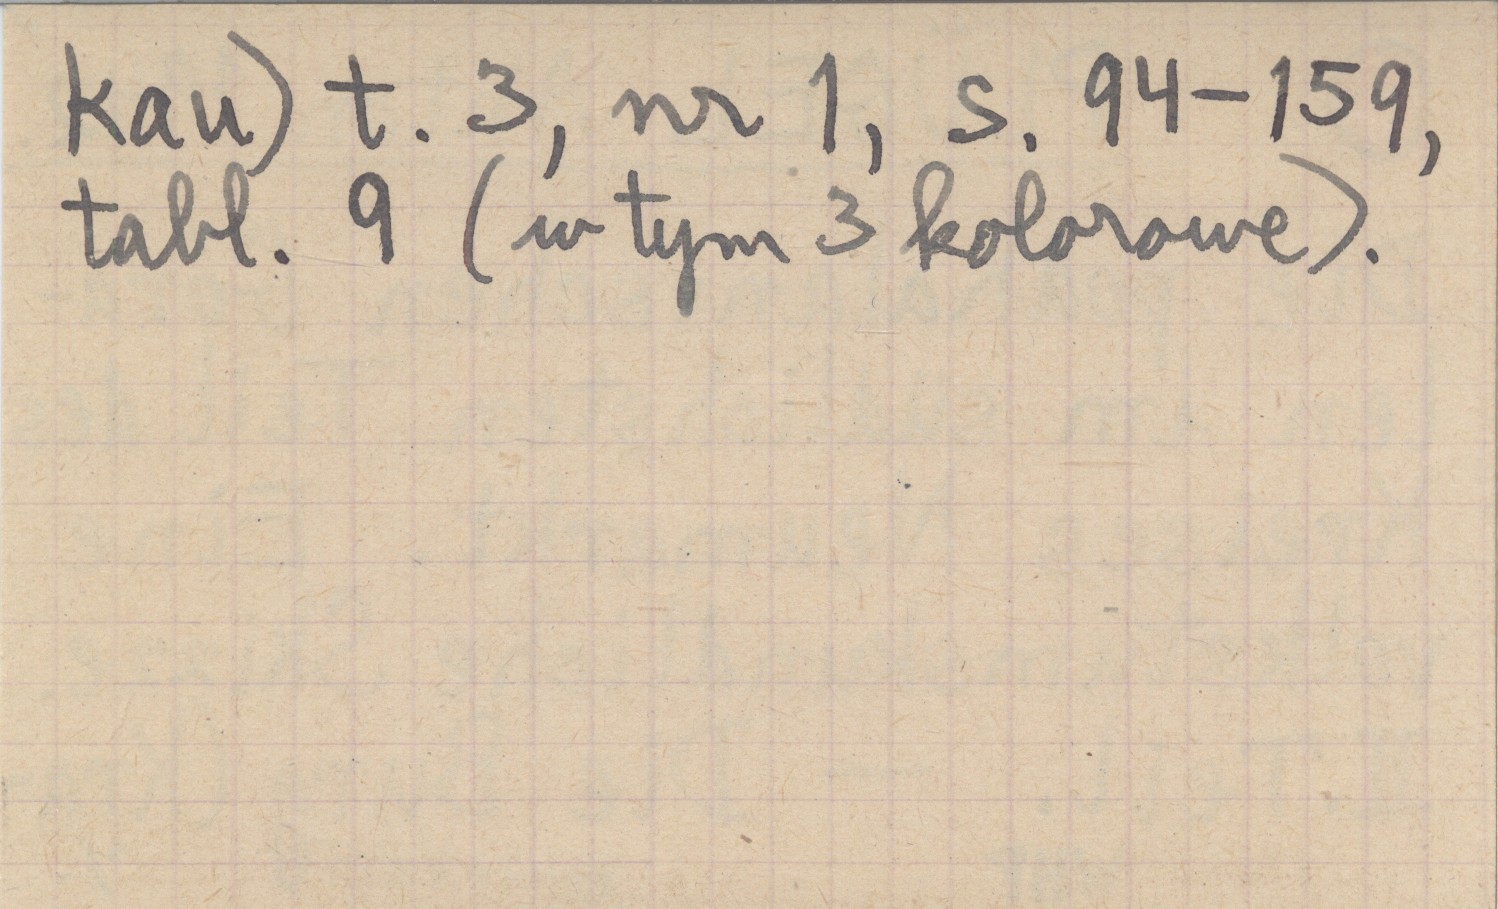 kau) t. 3, nr 1, s. 94-159,
tabl. 9 (w tym 3 kolorowe).